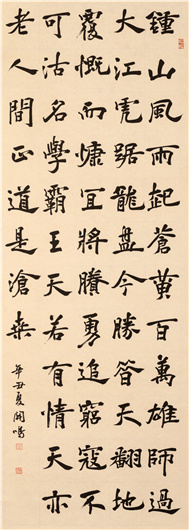 鍾山風雨起蒼黃百萬雄師過
大江虎踞龍盤今勝昔天翻地
覆慨而慷宜將賸勇追窮寇不
可沽名學霸王天若有情天亦
老人間正道是滄桑
辛丑夏